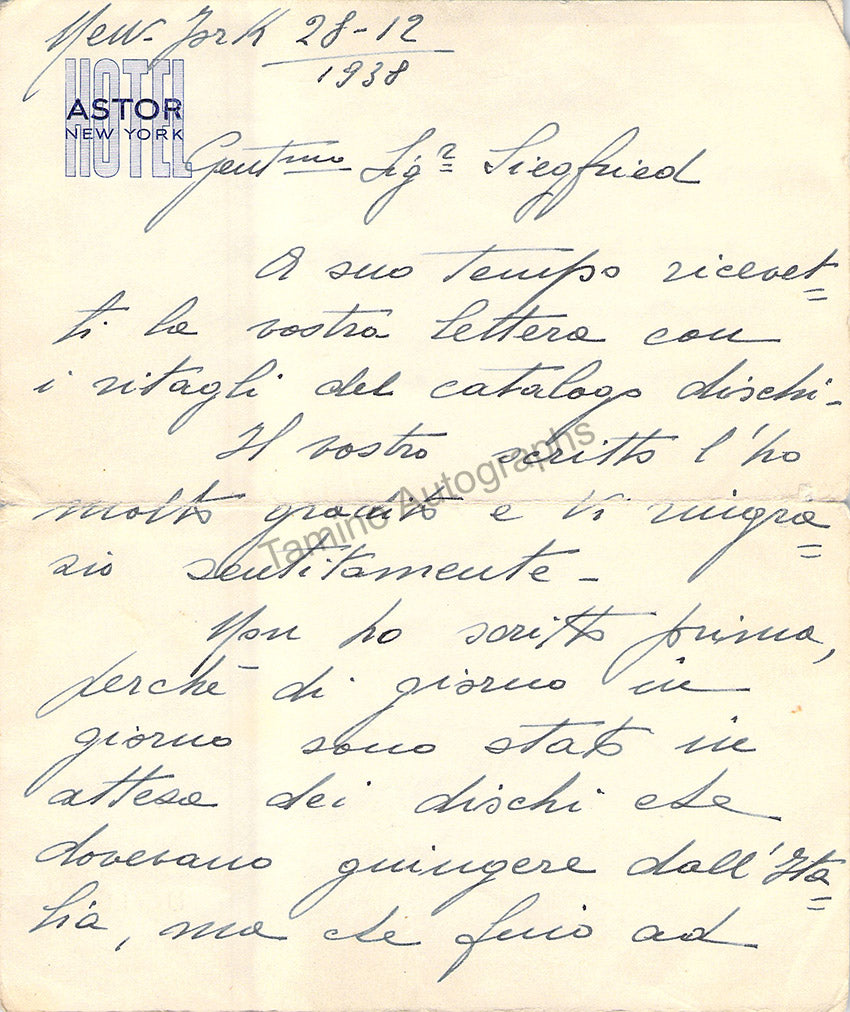 New-York 28-12
1938
HOTEL
ASTOR
NEW YORK
Gent.mo Sigr Siegfried
A suo tempo ricevet=
ti la vostra lettera con
i ritagli del catalogo dischi-
Il vostro scritto l'ho
molto gradito e Vi ringra=
zio sentitamente-
Non ho scritto prima,
perchè di giorno in
giorno sono stato in
attesa dei dischi che
dovevano giungere dall'Ita=
lia, ma che fino ad
Tamino Autographs